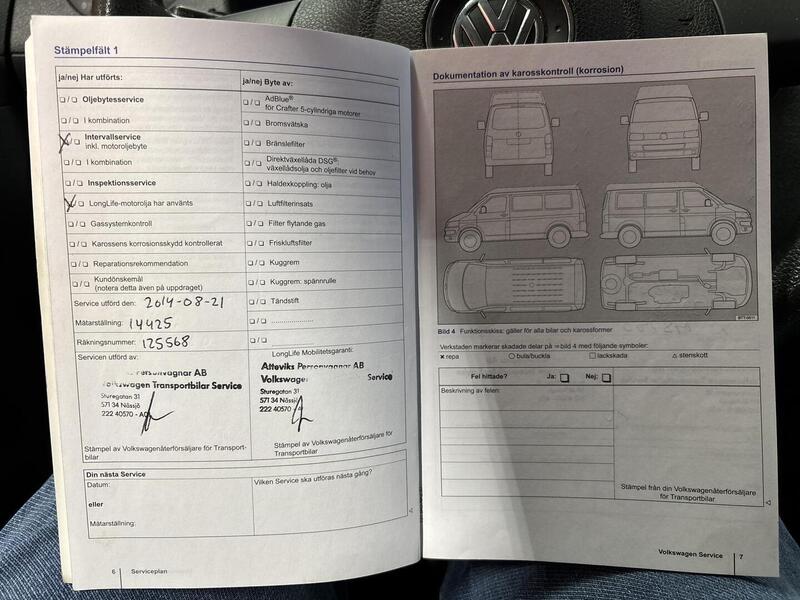 Stämpelfält 1
ja/nej Har utförts:
❏ / ❏ Oljebytesservice
❏ / ❏ I kombination
X / ❏ Intervallservice
inkl. motoroljebyte
❏ / ❏ I kombination
❏ / ❏ Inspektionsservice
X / ❏ LongLife-motorolja har använts
❏ / ❏ Gassystemkontroll
❏ / ❏ Karossens korrosionsskydd kontrollerat
❏ / ❏ Reparationsrekommendation
❏ / ❏ Kundönskemål
(notera detta även på uppdraget)
Service utförd den: 2014-08-21
Mätarställning: 14425
Räkningsnummer: 125568
Servicen utförd av:
Personvagnar AB
Volkswagen Transportbilar Service
Sturegatan 31
571 34 Nässjö
222 40570 - AC
Stämpel av Volkswagenåterförsäljare för Transport-
bilar
ja/nej Byte av:
❏ / ❏ AdBlue®
för Crafter 5-cylindriga motorer
❏ / ❏ Bromsvätska
❏ / ❏ Bränslefilter
❏ / ❏ Direktväxellåda DSG®:
växellådsolja och oljefilter vid behov
❏ / ❏ Haldexkoppling: olja
❏ / ❏ Luftfilterinsats
❏ / ❏ Filter flytande gas
❏ / ❏ Friskluftsfilter
❏ / ❏ Kuggrem
❏ / ❏ Kuggrem: spännrulle
❏ / ❏ Tändstift
❏ / ❏ ....................
❏ / ❏
LongLife Mobilitetsgaranti:
Atteviks Personvagnar AB
Volkswagen Service
Sturegatan 31
571 34 Nässjö
222 40570
Stämpel av Volkswagenåterförsäljare för
Transportbilar
Din nästa Service
Datum:
eller
Mätarställning:
Vilken Service ska utföras nästa gång?
6 Serviceplan
Dokumentation av karosskontroll (korrosion)
B7T-0611
Bild 4 Funktionsskiss: gäller för alla bilar och karossformer
Verkstaden markerar skadade delar på ⇒ bild 4 med följande symboler:
× repa ○ bula/buckla □ lackskada △ stenskott
Fel hittade? Ja: ❏ Nej: ❏
Beskrivning av felen:
Stämpel från din Volkswagenåterförsäljare
för Transportbilar
Volkswagen Service 7